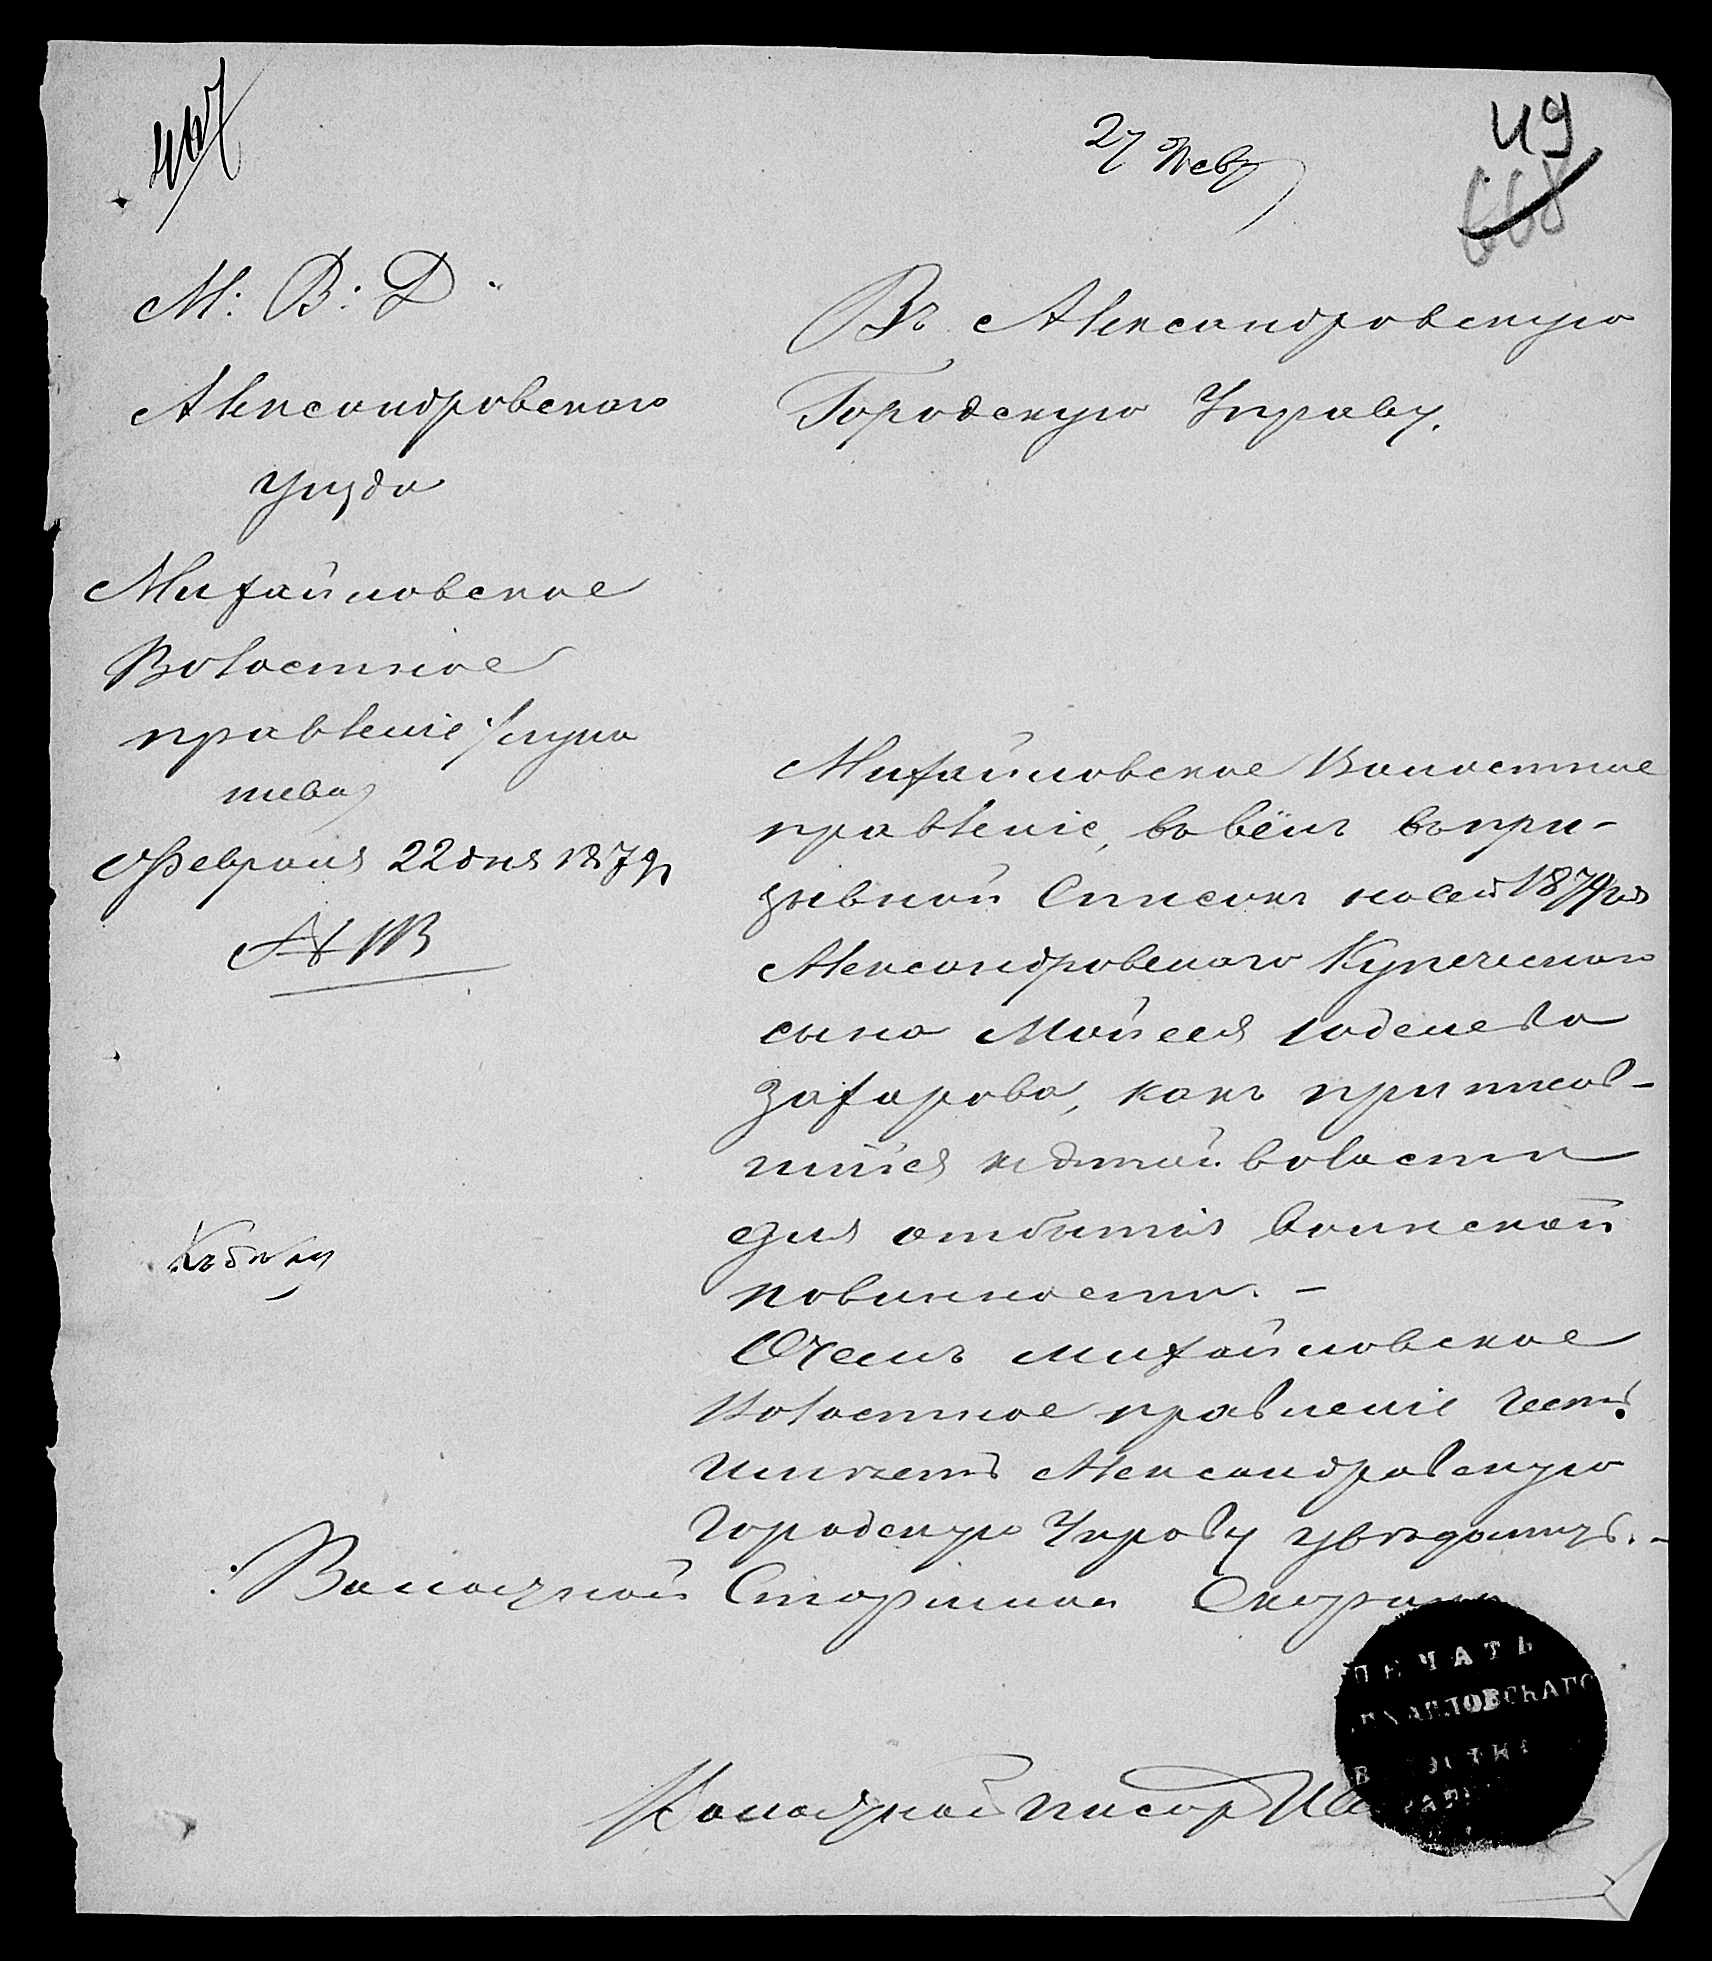 27 Февр
49
668
М: В: Д.
Александровскаго
уѣзда
Михайловское
Волостное
правленіе
Февраля 22 дня 1879 г
№ 113
Къ дѣлу
Въ Александровскую
Городскую Управу.
Михайловское Волостное
правленіе, вовсёмъ въпри-
зывной Списокъ насей 1879 годъ
Александровскаго Купеческаго
сына Мойсея Юделева
Захарова, какъ приписав-
шійся кэтой волости
для отбытія воинской
повинности. –
Очемъ михайловское
Волостное правленіе Честь
имѣетъ Александровскую
Городскую Управу увѣдомить. –
Волостной Старшина
Волостной писарь
ПЕЧАТЬ
МИХАЙЛОВСКАГО